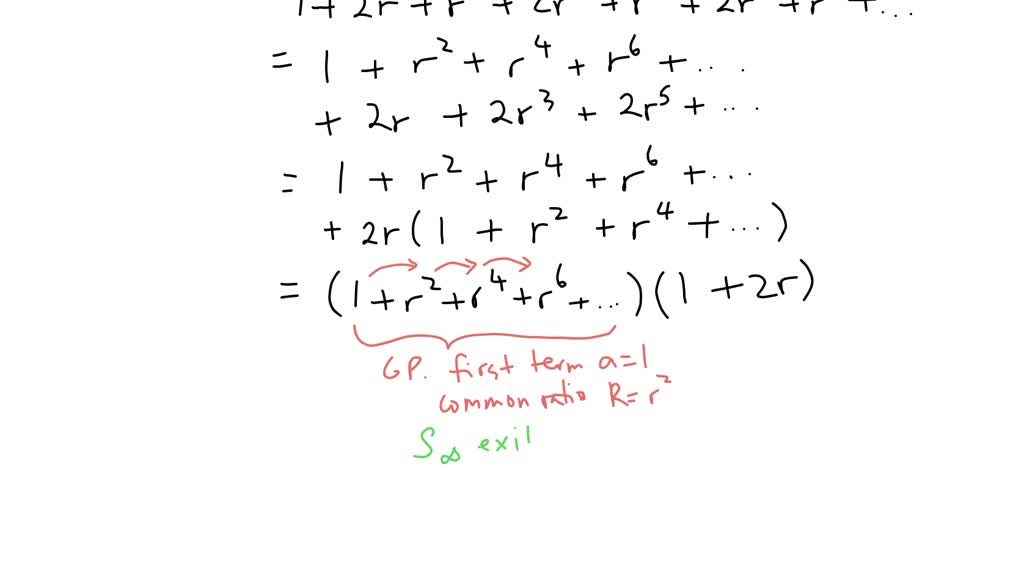 1 + 2r + r + 2r + r + 2r + r + ...
= 1 + r² + r⁴ + r⁶ + ...
+ 2r + 2r³ + 2r⁵ + ...
= 1 + r² + r⁴ + r⁶ + ...
+ 2r(1 + r² + r⁴ + ...)
= (1 + r² + r⁴ + r⁶ + ...)(1 + 2r)
GP. first term a=1
common ratio R=r²
S∞ exi